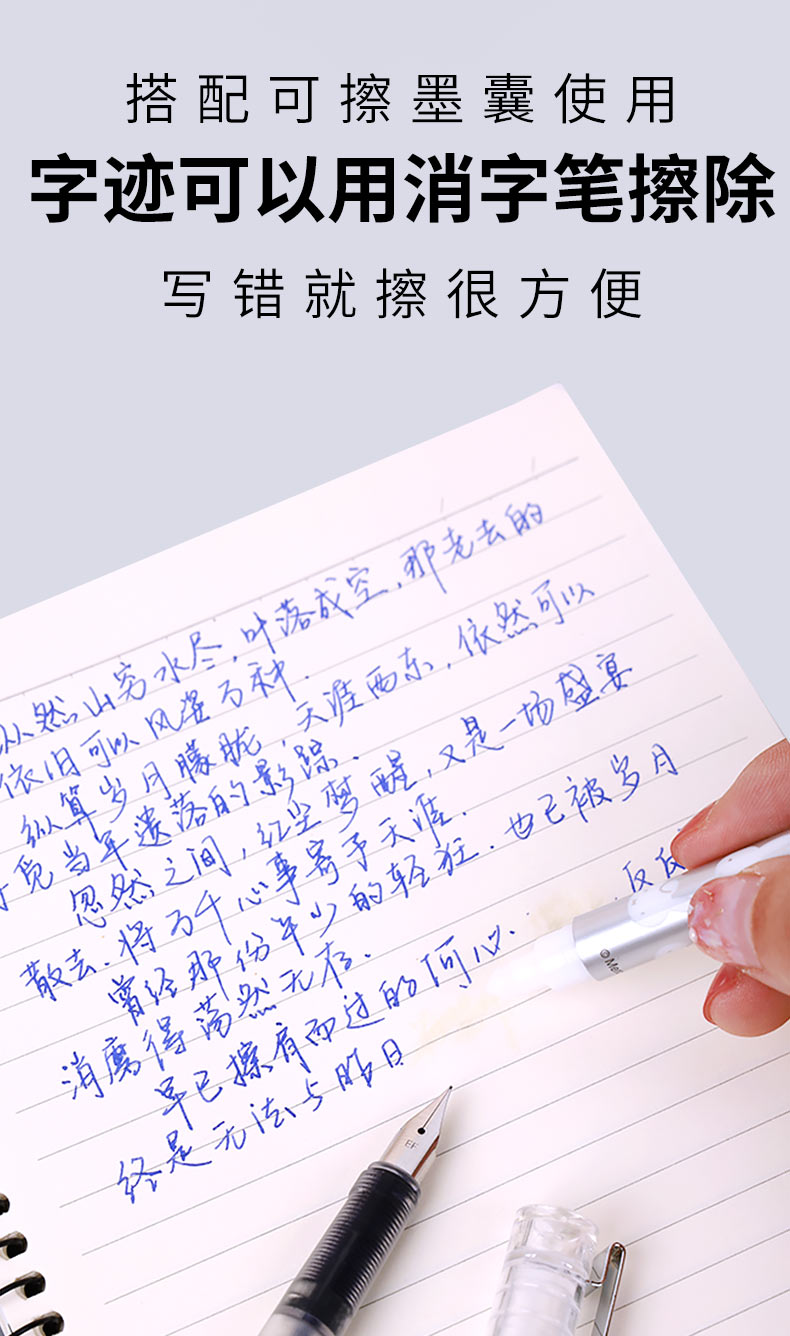 搭配可擦墨囊使用
字迹可以用消字笔擦除
写错就擦很方便
纵然山穷水尽，叶落成空，那老去的
依旧可以风湿万种．
纵算岁月朦胧，天涯西东，依然可以
寻觅当年遗落的影踪．
忽然之间，红尘梦醒，又是一场盛宴
散去．将万千心事寄予天涯．
曾经那份年少的轻狂．也已被岁月
消磨得荡然无存．
早已擦肩而过的何必．反反
终是无法与昨日
EF